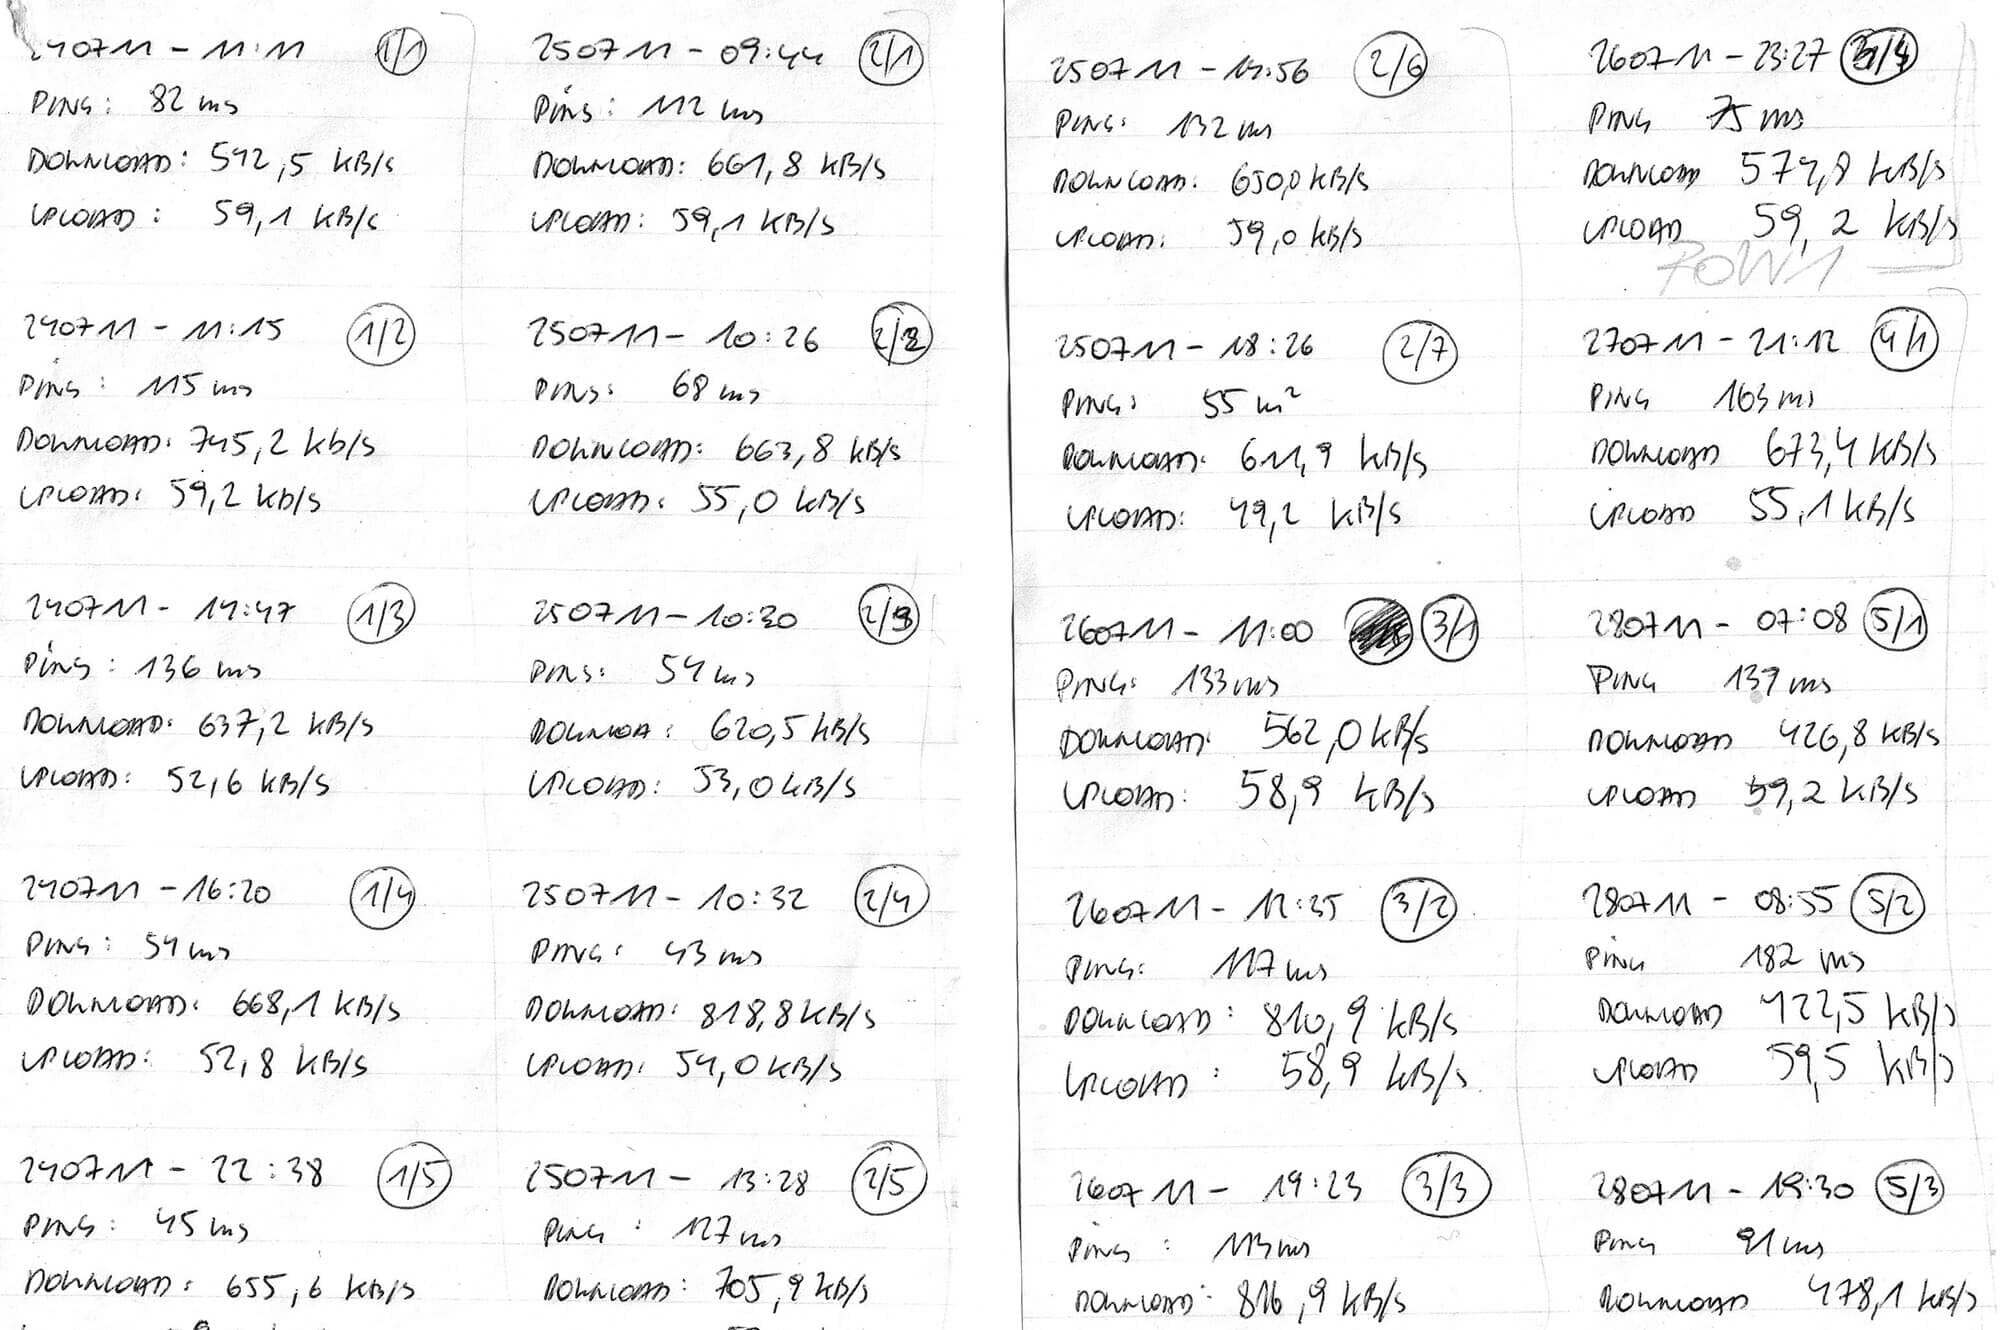 240711 - 11:11 1/1
PING: 82 ms
DOWNLOAD: 542,5 KB/s
UPLOAD: 59,1 KB/s
240711 - 11:15 1/2
PING: 115 ms
DOWNLOAD: 745,2 kb/s
UPLOAD: 59,2 KB/s
240711 - 14:47 1/3
PING: 136 ms
DOWNLOAD: 637,2 KB/s
UPLOAD: 52,6 KB/s
240711 - 16:20 1/4
PING: 54 ms
DOWNLOAD: 668,1 KB/s
UPLOAD: 52,8 KB/s
240711 - 22:38 1/5
PING: 45 ms
DOWNLOAD: 655,6 KB/s
250711 - 09:44 2/1
PING: 112 ms
DOWNLOAD: 661,8 KB/s
UPLOAD: 59,1 KB/s
250711 - 10:26 2/2
PING: 68 ms
DOWNLOAD: 663,8 KB/s
UPLOAD: 55,0 KB/s
250711 - 10:30 2/3
PING: 54 ms
DOWNLOA: 620,5 KB/s
UPLOAD: 53,0 KB/s
250711 - 10:32 2/4
PING: 43 ms
DOWNLOAD: 818,8 KB/s
UPLOAD: 54,0 KB/s
250711 - 13:28 2/5
PING: 127 ms
DOWNLOAD: 705,9 KB/s
250711 - 17:56 2/6
PING: 132 ms
DOWNLOAD: 650,0 KB/s
UPLOAD: 59,0 KB/s
250711 - 18:26 2/7
PING: 55 ms
DOWNLOAD: 611,9 KB/s
UPLOAD: 49,2 KB/s
260711 - 11:00 3/1
PING: 133 ms
DOWNLOAD: 562,0 KB/s
UPLOAD: 58,9 KB/s
260711 - 12:35 3/2
PING: 117 ms
DOWNLOAD: 810,9 KB/s
UPLOAD: 58,9 KB/s
260711 - 19:23 3/3
PING: 113 ms
DOWNLOAD: 816,9 KB/s
260711 - 23:27 3/4
PING 75 ms
DOWNLOAD 574,8 KB/s
UPLOAD 59,2 KB/s
ROW 1
270711 - 21:12 4/1
PING 163 ms
DOWNLOAD 673,4 KB/s
UPLOAD 55,1 KB/s
280711 - 07:08 5/1
PING 139 ms
DOWNLOAD 426,8 KB/s
UPLOAD 59,2 KB/s
280711 - 08:55 5/2
PING 182 ms
DOWNLOAD 422,5 KB/s
UPLOAD 59,5 KB/s
280711 - 19:30 5/3
PING 91 ms
DOWNLOAD 478,1 KB/s